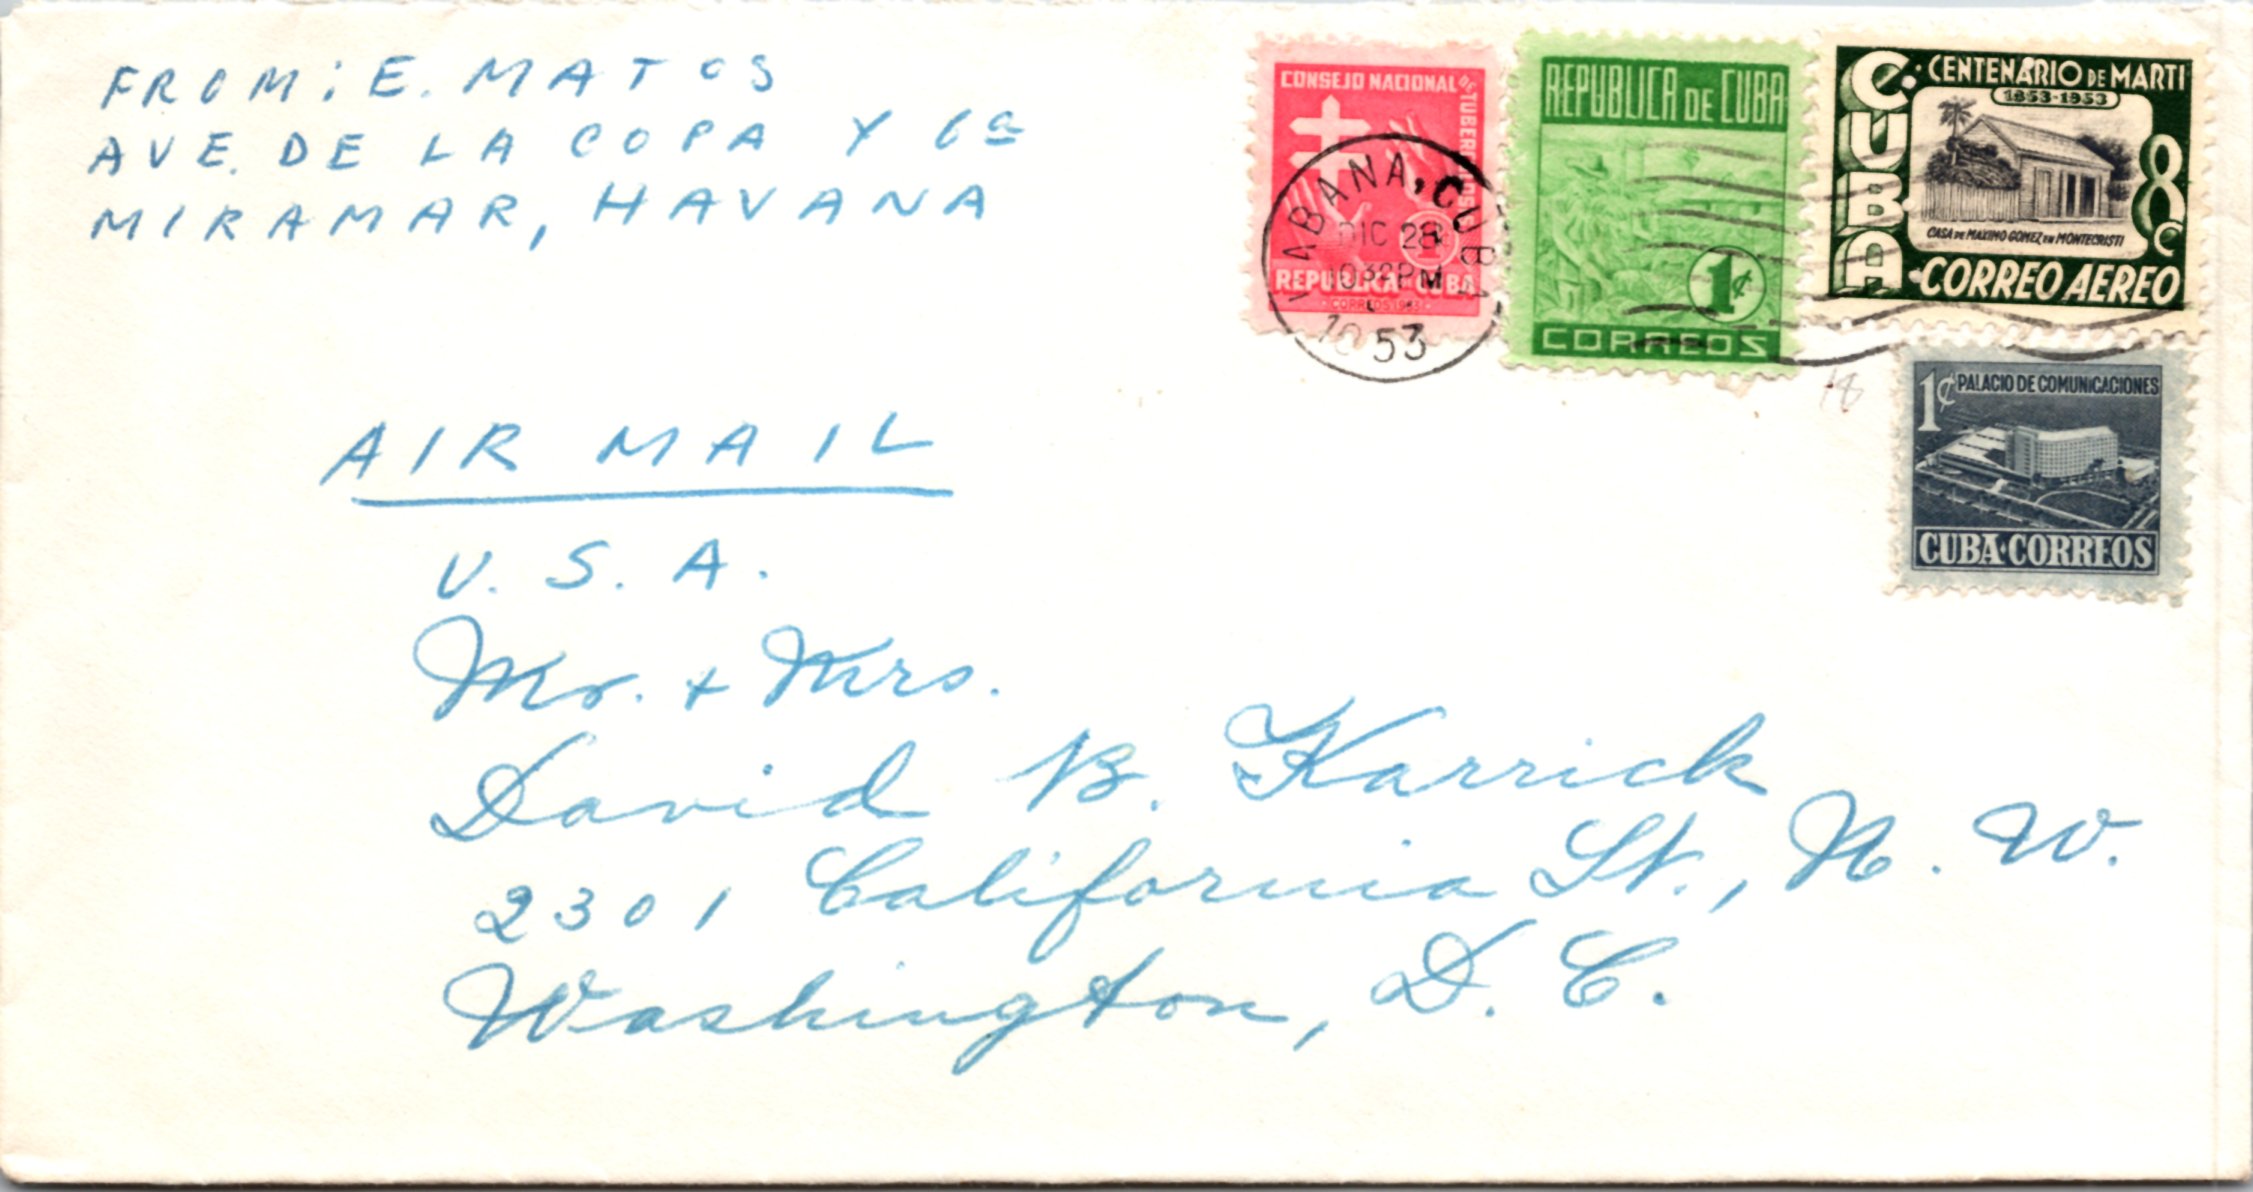 FROM: E. MATOS
AVE. DE LA COPA Y 6a
MIRAMAR, HAVANA
CONSEJO NACIONAL DE TUBERCULOSIS
1c
REPUBLICA DE CUBA
CORREOS 1953
HABANA, CUBA
DIC 28
1030 PM
1953
REPUBLICA DE CUBA
1¢
CORREOS
CUBA
CENTENARIO DE MARTI
1853-1953
8c
CASA DE MAXIMO GOMEZ EN MONTECRISTI
CORREO AEREO
18
1¢ PALACIO DE COMUNICACIONES
CUBA·CORREOS
AIR MAIL
U.S.A.
Mr. + Mrs.
David B. Karrick
2301 California St., N.W.
Washington, D.C.